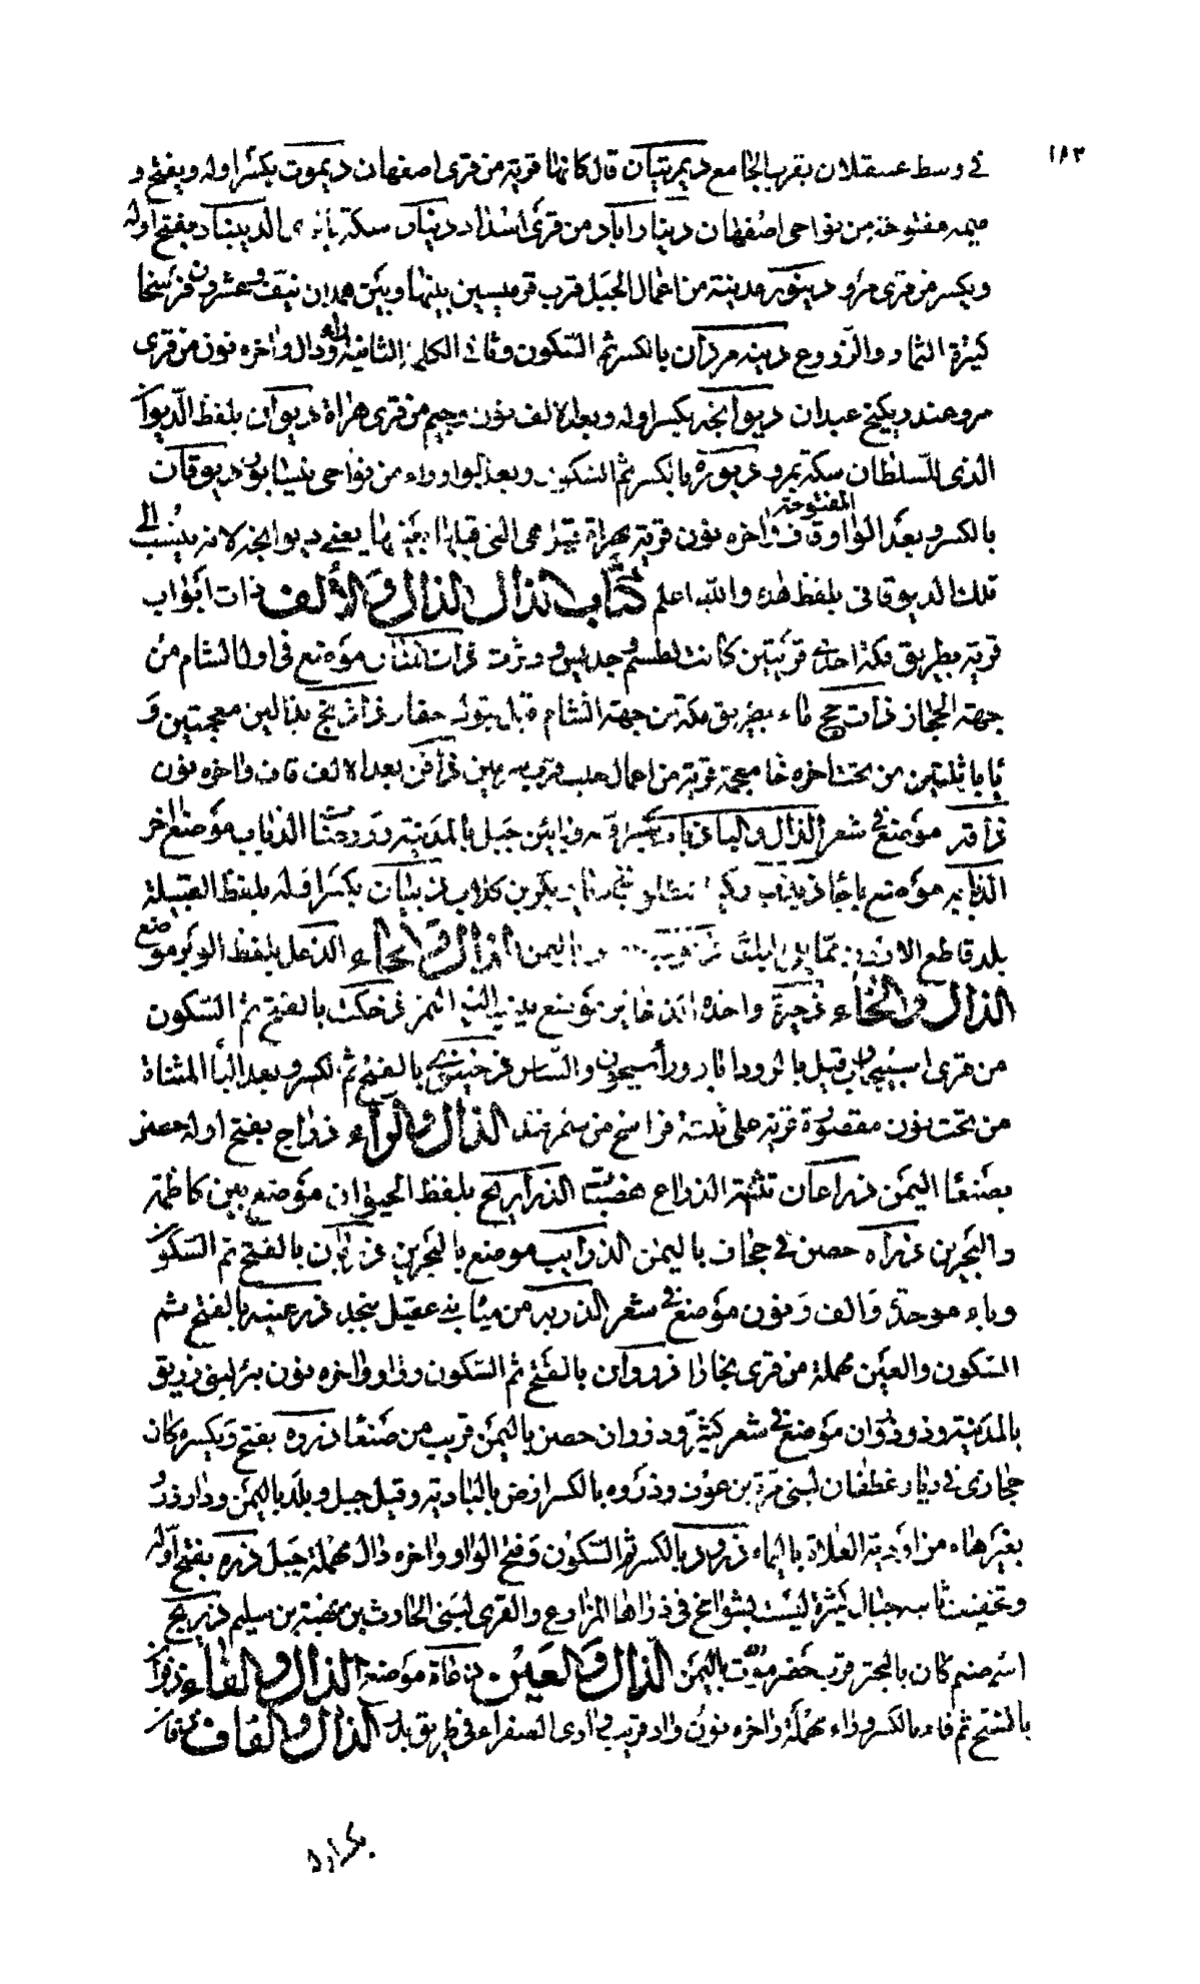 ١٨٣
في وسط عسقلان بقرب الجامع ديمرتيان قال كانها قرية من قرى اصفهان ديموت بكسر اوله ويفتح و
ميمه مفتوحة من نواحي اصفهان دينار اباد من قرى اسداباد دينار سكة بالري الدينباد بفتح اوله
ويكسر من قرى مرو دينور مدينة من اعمال الجبل قرب قرميسين بينها وبين همدان نيف وعشرون فرسخا
كثيرة الثمار والزروع دينه مردان بالكسر ثم السكون وفاء في الكلمة الثانية راء ودال واخره نون من قرى
مرو عند ديكنج عبدان ديوانجه بكسر اوله وبعد الالف نون وجيم من قرى هراة ديوان بلفظ الديوان
الذي للسلطان سكة بمرو ديوره بالكسر ثم السكون وبعد الواو راء من نواحي نيسابور ديوقان
بالكسر وبعد الواو المفتوحة قاف واخره نون قرية بهراة قيل هي التي قبلها بعينها يعني ديوانجه لانه ينسب الى
تلك الديوقاني بلفظ هذه والله اعلم كتاب الذال الذال والألف ذات ابواب
قرية بطريق مكة احدى قريتين كانت لطسم وجديس ذات المنار موضع في اول الشام من
جهة الحجاز ذات حج ماء بطريق مكة من جهة الشام قبل تبوك ذاذيخ بذالين معجمتين و
يا باثنتين من تحت اخره خا معجمة قرية من اعمال حلب قرب سرمين ذاقن بعد الالف قاف واخره نون
ذاقر موضع في شعر الذال والبا ذباب جبل بالمدينة ودوحنا الذباب موضع اخر
الذنابه موضع باجا بن كلاب ذبيان بكسر اوله بلفظ القبيلة
بلد قاطع الاردن مما يلي البلقا اليمن الذال والحاء الذحل بلفظ الوتر موضع
الذال والخاء ذخيرة واحدة الذخاير موضع ينسب اليه التمر ذخكث بالفتح ثم السكون
من قرى اسبيجاب وقيل بالروذبار ورا سيحون والشاش ذخينوى بالفتح ثم الكسر وبعد اليا المثناة
من تحت نون مقصورة قرية على ثلثة فراسخ من سمرقند الذال والراء ذراح بفتح اوله حصن
بصنعا اليمن ذراعان تثنية الذراع هضبتان الذراريح بلفظ الحيوان موضع بين كاظمة
والبحرين ذراه حصن في جحاف باليمن الذرايب موضع بالبحرين ذربان بالفتح ثم السكون
وباء موحدة والف ونون موضع في شعر الذربه من مياه بني عقيل بنجد ذرعينه بالفتح ثم
السكون والعين مهملة من قرى بخارا ذروان بالفتح ثم السكون وواو واخره نون بئر لبني زريق
بالمدينة وذو ذروان موضع في شعر كثير وذروان حصن باليمن قريب من صنعا ذروه بفتح ويكسر مكان
حجازي في ديار غطفان لبني مرة بن عوف وذروه بالكسر ارض بالبادية وقيل جبل وبلد باليمن ودار ذرو
بغير هاء من اودية العلاة باليمامة ذرود بالكسر ثم السكون وفتح الواو واخره دال مهملة جبل ذره بفتح اوله
وتخفيف ثانيه جبال كثيرة ليست بشوامخ في ذراها المزارع والقرى لبني الحارث بن بهثة بن سليم ذريح
اسم صنم كان بالنجير قرب حضرموت باليمن الذال والعين ذعاط موضع الذال والفاء ذفران
بالفتح ثم فاء بالكسر وراء مهملة واخره نون واد قريب وادي الصفراء في طريق بدر الذال والقاف ذقان
بكسر اوله